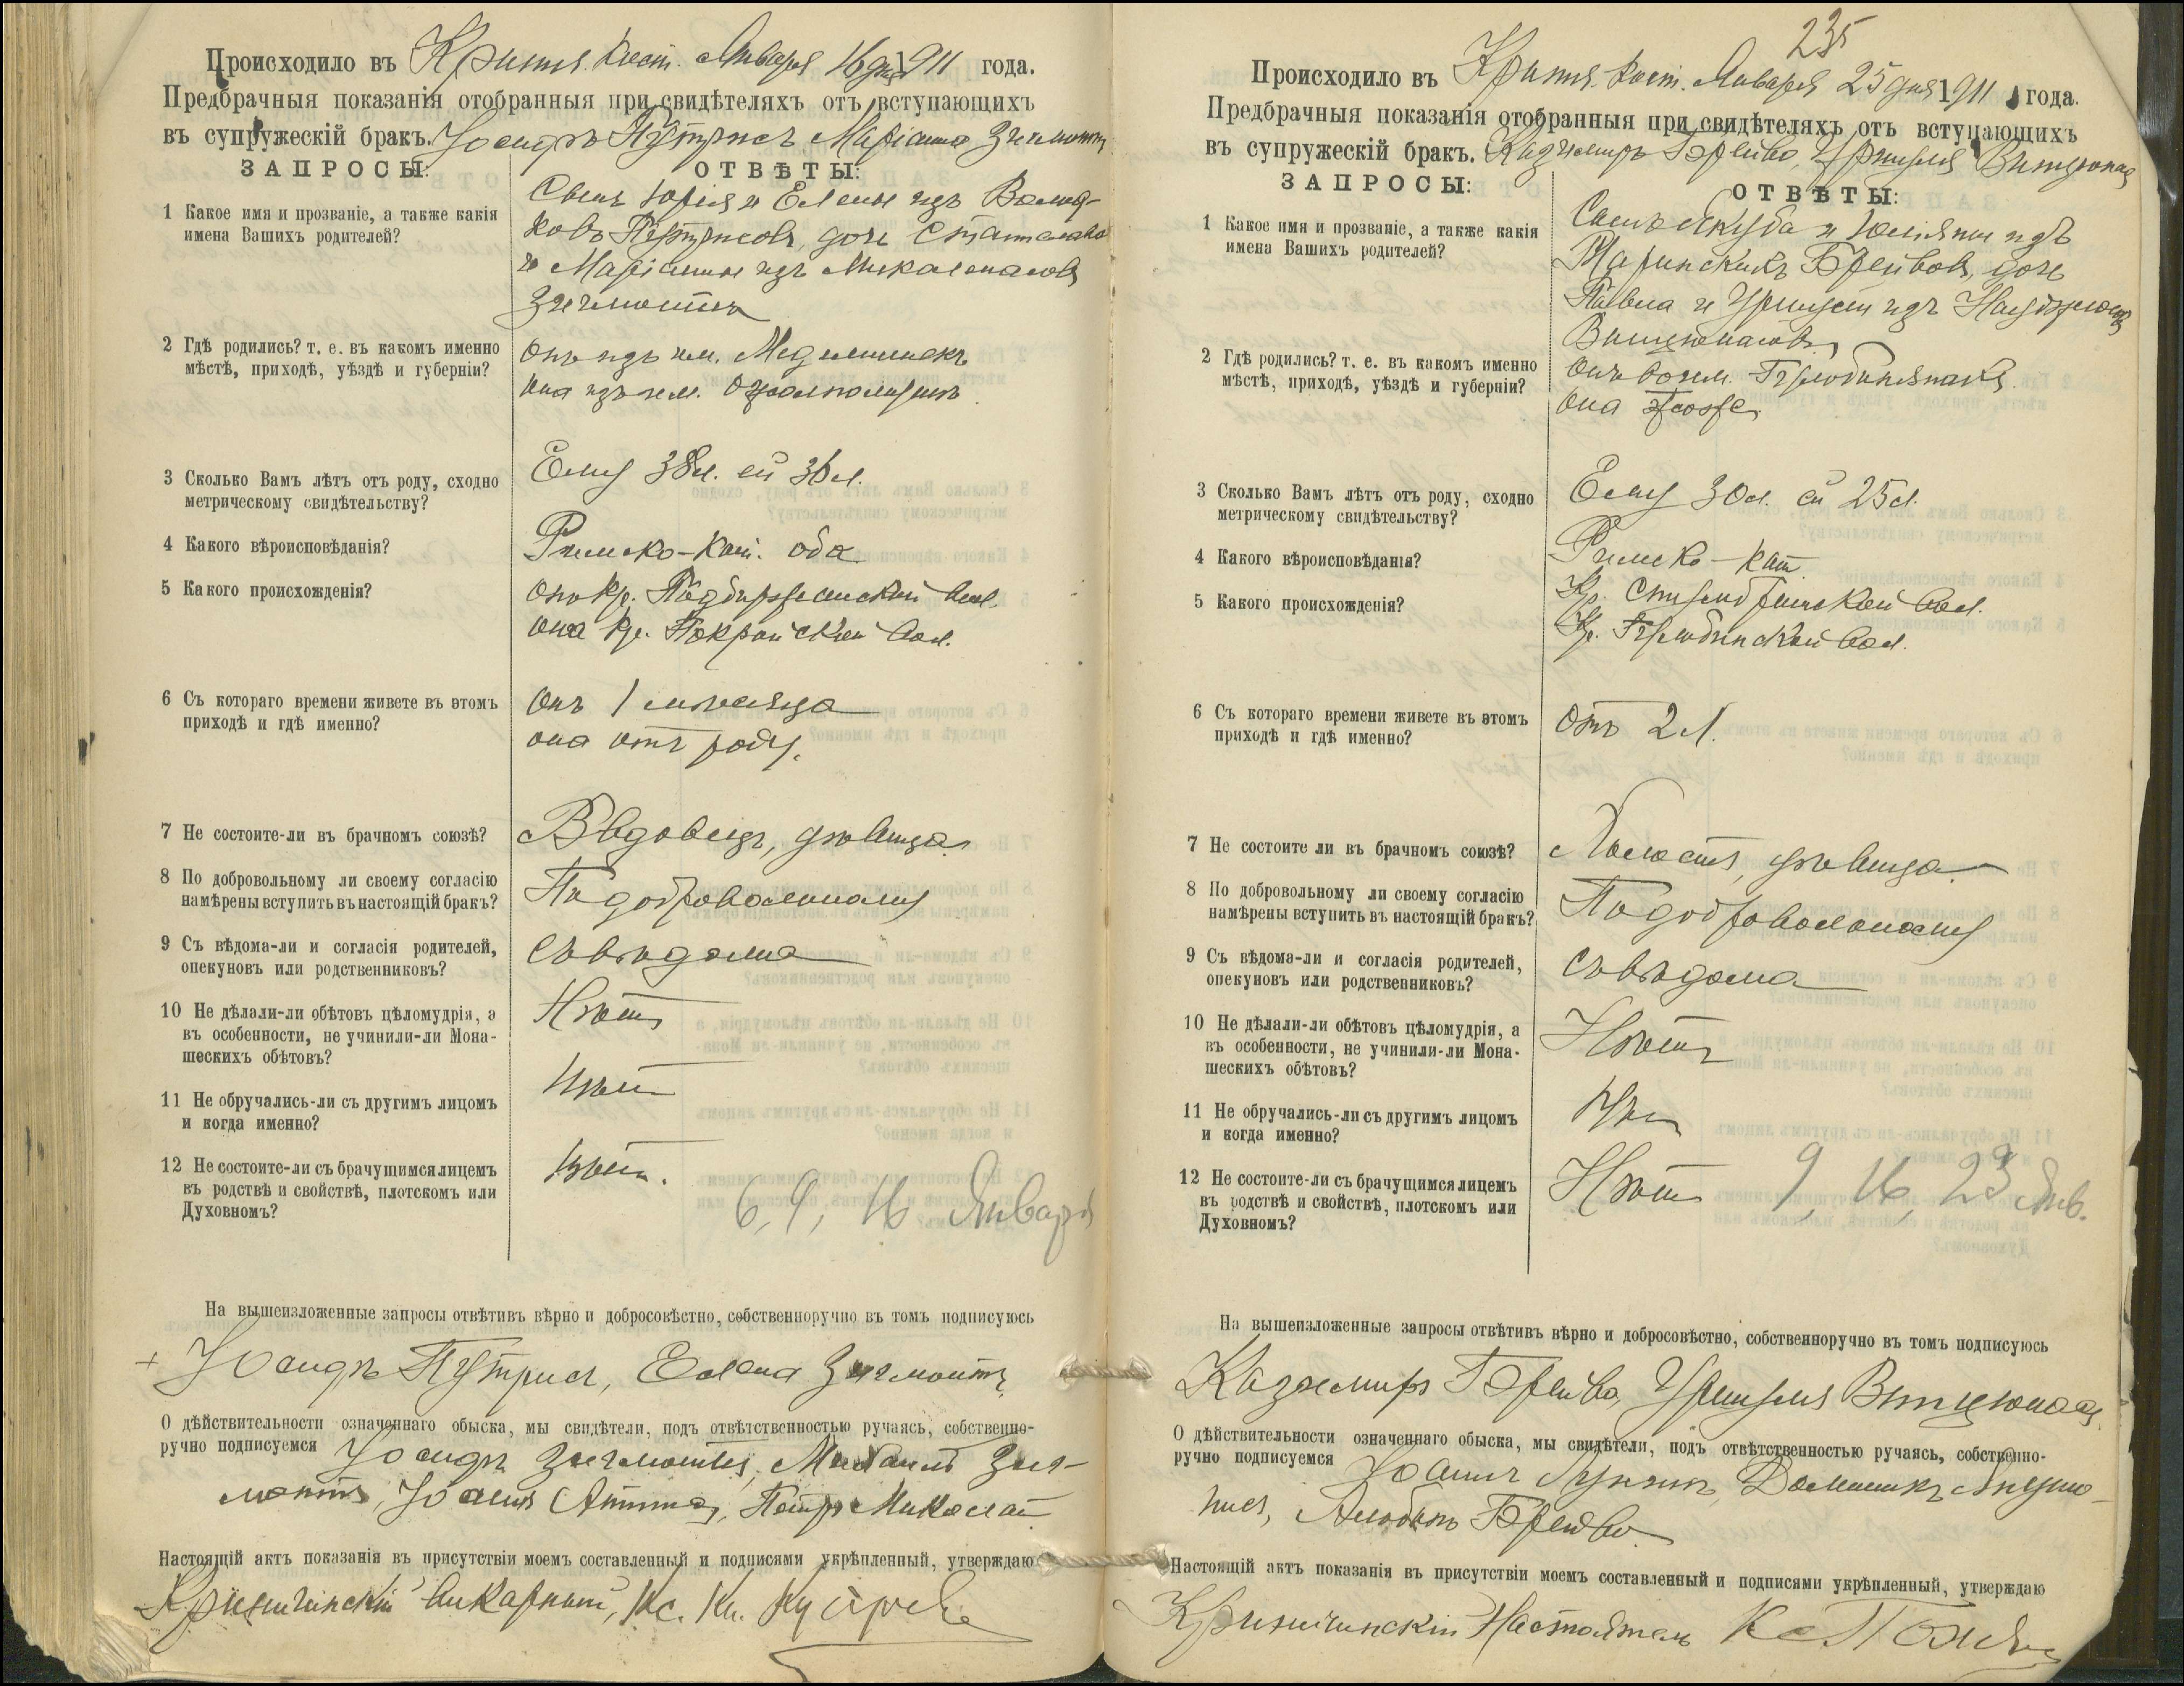 Происходило въ Кринч. кост. Января 16 дня 1911 года.
Предбрачныя показанія отобранныя при свидѣтеляхъ отъ вступающихъ
въ супружескій бракъ. Іосифъ Путрисъ Маріанна Зигмонтъ
ЗАПРОСЫ:
ОТВѢТЫ:
1 Какое имя и прозваніе, а также какія
имена Вашихъ родителей?
Сынъ Юрія и Елены изъ
Путрисовъ, дочь
и Маріанны изъ Миколаюнасовъ
Зигмонтъ
2 Гдѣ родились? т. е. въ какомъ именно
мѣстѣ, приходѣ, уѣздѣ и губерніи?
Онъ изъ им.
Она изъ им.
3 Сколько Вамъ лѣтъ отъ роду, сходно
метрическому свидѣтельству?
Ему 38 л. ей 36 л.
4 Какого вѣроисповѣданія?
Римско-кат. оба
5 Какого происхожденія?
Онъ кр. Подбиржанской вол.
она кр. Покройской вол.
6 Съ котораго времени живете въ этомъ
приходѣ и гдѣ именно?
Онъ 1 мѣсяца
она отъ роду.
7 Не состоите-ли въ брачномъ союзѣ?
Вдовецъ, дѣвица
8 По добровольному ли своему согласію
намѣрены вступить въ настоящій бракъ?
По добровольному
9 Съ вѣдома-ли и согласія родителей,
опекуновъ или родственниковъ?
Съ вѣдома
10 Не дѣлали-ли обѣтовъ цѣломудрія, а
въ особенности, не учинили-ли Мона-
шескихъ обѣтовъ?
Нѣтъ
11 Не обручались-ли съ другимъ лицомъ
и когда именно?
Нѣтъ
12 Не состоите-ли съ брачущимся лицемъ
въ родствѣ и свойствѣ, плотскомъ или
Духовномъ?
Нѣтъ.
6, 9, 16 Января
На вышеизложенные запросы отвѣтивъ вѣрно и добросовѣстно, собственноручно въ томъ подписуюсь
+ Іосифъ Путрисъ, Елена Зигмонтъ
О дѣйствительности означеннаго обыска, мы свидѣтели, подъ отвѣтственностью ручаясь, собственно-
ручно подписуемся Іосифъ Зигмонтъ, Михаилъ Зиг-
монтъ, Іоаннъ, Петръ Миколай
Настоящій актъ показанія въ присутствіи моемъ составленный и подписями укрѣпленный, утверждаю
Криничинскій Викарный, Кс.
235
Происходило въ Кринч. кост. Января 25 дня 1911 года.
Предбрачныя показанія отобранныя при свидѣтеляхъ отъ вступающихъ
въ супружескій бракъ. Казимиръ Брейво, Уршуля
ЗАПРОСЫ:
ОТВѢТЫ:
1 Какое имя и прозваніе, а также какія
имена Вашихъ родителей?
Сынъ Якуба и Юліяны изъ
Брейвовъ, дочь
Павла и Уршули изъ
2 Гдѣ родились? т. е. въ какомъ именно
мѣстѣ, приходѣ, уѣздѣ и губерніи?
Онъ во им.
Она тоже
3 Сколько Вамъ лѣтъ отъ роду, сходно
метрическому свидѣтельству?
Ему 30 л. ей 25 л.
4 Какого вѣроисповѣданія?
Римско-кат.
5 Какого происхожденія?
Кр. вол.
Кр. вол.
6 Съ котораго времени живете въ этомъ
приходѣ и гдѣ именно?
Отъ 2 л.
7 Не состоите ли въ брачномъ союзѣ?
Холостъ, дѣвица
8 По добровольному ли своему согласію
намѣрены вступить въ настоящій бракъ?
По добровольному
9 Съ вѣдома-ли и согласія родителей,
опекуновъ или родственниковъ?
Съ вѣдома
10 Не дѣлали-ли обѣтовъ цѣломудрія, а
въ особенности, не учинили-ли Мона-
шескихъ обѣтовъ?
Нѣтъ
11 Не обручались-ли съ другимъ лицомъ
и когда именно?
Нѣтъ
12 Не состоите-ли съ брачущимся лицемъ
въ родствѣ и свойствѣ, плотскомъ или
Духовномъ?
Нѣтъ
9, 16, 23 Янв.
На вышеизложенные запросы отвѣтивъ вѣрно и добросовѣстно, собственноручно въ томъ подписуюсь
Казимиръ Брейво, Уршуля
О дѣйствительности означеннаго обыска, мы свидѣтели, подъ отвѣтственностью ручаясь, собственно-
ручно подписуемся Іоаннъ Доминикъ
Брейво
Настоящій актъ показанія въ присутствіи моемъ составленный и подписями укрѣпленный, утверждаю
Криничинскій Настоятель